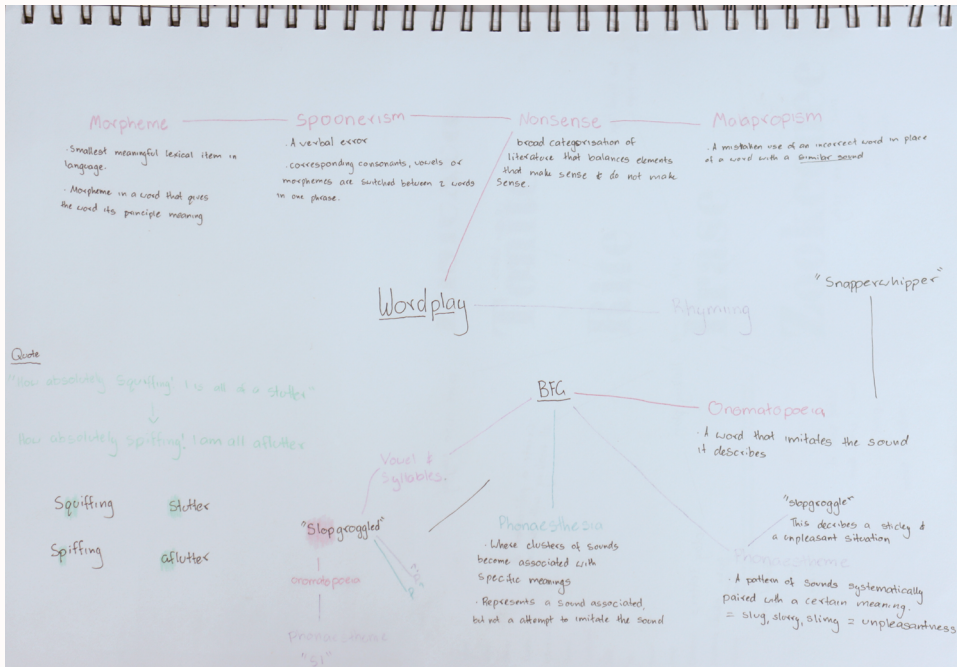 Morpheme
· Smallest meaningful lexical item in
language.
· Morpheme in a word that gives
the word its principle meaning
Spoonerism
· A verbal error
· corresponding consonants, vowels or
morphemes are switched between 2 words
in one phrase.
Nonsense
broad categorisation of
literature that balances elements
that make sense & do not make
sense.
Malapropism
· A mistaken use of an incorrect word in place
of a word with a similar sound
Wordplay
Rhyming
"Snapperwhipper"
Quote
"How absolutely squiffing! I is all of a stutter"
How absolutely spiffing! I am all aflutter
Squiffing stutter
Spiffing aflutter
BFG
Onomatopoeia
· A word that imitates the sound
it describes
Vowel &
Syllables.
"Slopgroggled"
onomatopoeia
"Sl"
Phonaesthesia
· Where clusters of sounds
become associated with
specific meanings
· Represents a sound associated,
but not a attempt to imitate the sound
"slopgroggle"
This decribes a sticky &
a unpleasant situation
Phonaestheme
· A pattern of sounds systematically
paired with a certain meaning.
= slug, slorry, slimg = unpleasantness